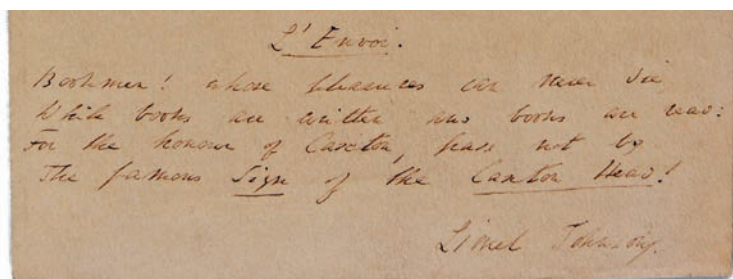 L'Envoi.
Bookmen! whose pleasures can never die
While books are written and books are read:
For the honour of Caxton, pass not by
The famous Sign of the Caxton Head!
Lionel Johnson.